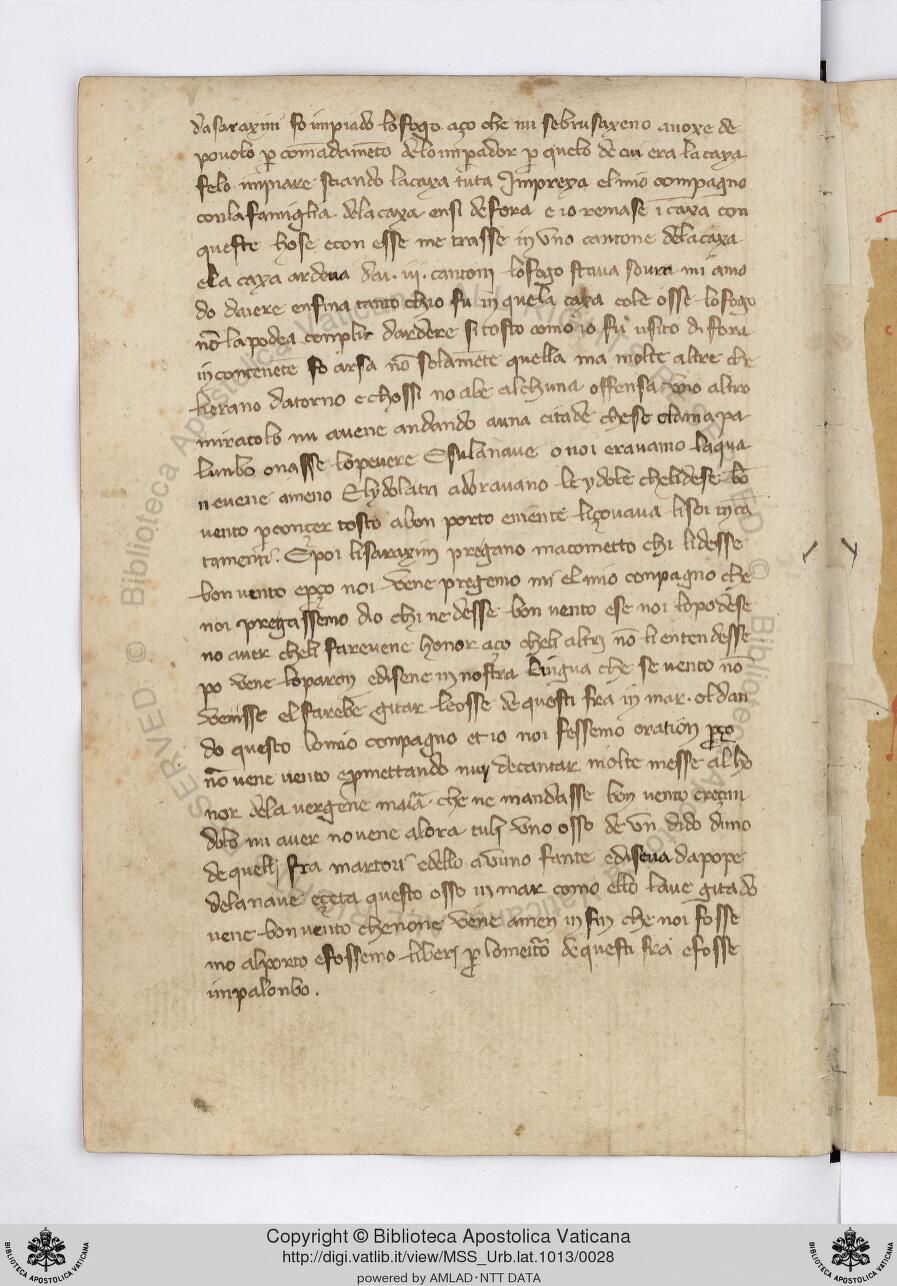 da saraxini fo impiado lo fogo aço che mi se brusaxeno a uoxe de
pouolo p comãdamẽto de lo imperador p quelo de cui era la caxa
felo impiare stando la caxa tuta Imprexa el mio compagno
con la famiglia de la caxa ensi de fora e io remase ĩ caxa con
queste hose e con esse me trasse in uno cantone de la caxa
e la caxa ardeua da .iij. cantoni lo fogo staua soura mi a mo
do daiere enfina tanto chio fu in quela caxa cole osse lo fogo
nõ la podea complir dardere si tosto como io fu usito di fora
incontenẽte fo arsa nõ solamẽte quella ma molte altre che
li erano datorno e chossi no abe alchuna offensa uno altro
miracolo mi auene andando a una citade che se clama pa
lunbo o nasse lo peuere E su la naue o noi erauamo la qua
n e uene a meno E ly dolatri adorauano le ydole che li dese bõ
uento p conçer tosto a bon porto e niente li çouaua li soi incã
tamenti. E poi li saraxini pregano macometto chi li desse
bon uento e pço noi uene pregemo mi el mio conpagno che
noi pregassemo dio chi ne desse bon uento e se noi lo podese
no auer cheli fareuene honor aço cheli altri nõ li entendesse
po uene lo paron e disene in nostra lingua che se uento nõ
uenisse el farebe gitar le osse de questi fra in mar. oldan
do questo lo mio conpagno et io noi fessemo oration pço
nõ uene uento e pmettando nuy de cantar molte messe al ho
nor de la uergene maria che ne mandasse bon uento creçan
dolo mi auer no uene alora tulj uno osso de un dido duno
de quelli fra martori e dello a uuno fante e diseua da pope
de la naue e çeta questo osso in mar como ello laue gitado
uene bon uento che none uẽne a men in fin che noi fosse
mo al porto e fossemo liberj p lo meito de questi fra e fosse
in palonbo .
Copyright © Biblioteca Apostolica Vaticana
http://digi.vatlib.it/view/MSS_Urb.lat.1013/0028
powered by AMLAD·NTT DATA